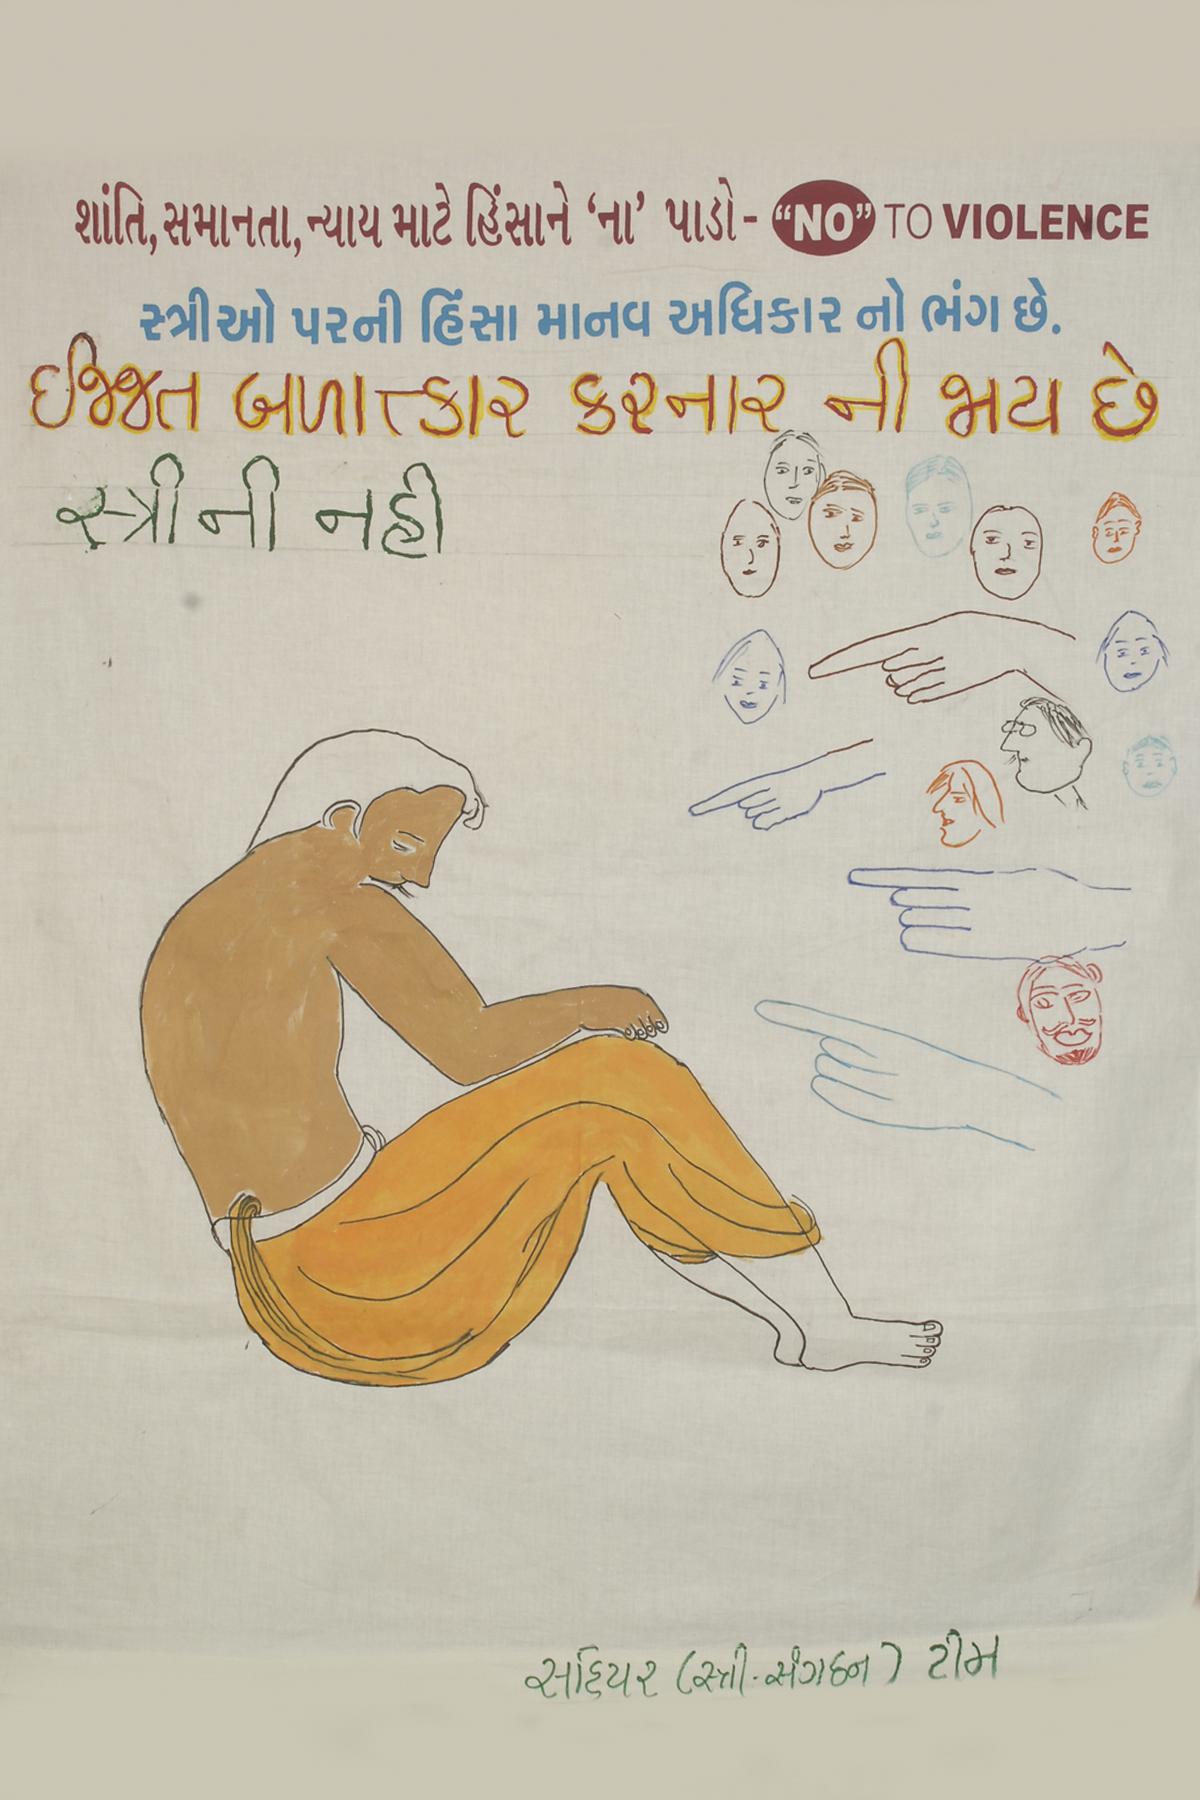 શાંતિ, સમાનતા, ન્યાય માટે હિંસાને ‘ના’ પાડો- “NO” TO VIOLENCE
સ્ત્રીઓ પરની હિંસા માનવ અધિકાર નો ભંગ છે.
ઈજ્જત બળાત્કાર કરનાર ની જાય છે
સ્ત્રીની નહી
સહિયર (સ્ત્રી-સંગઠન) ટીમ